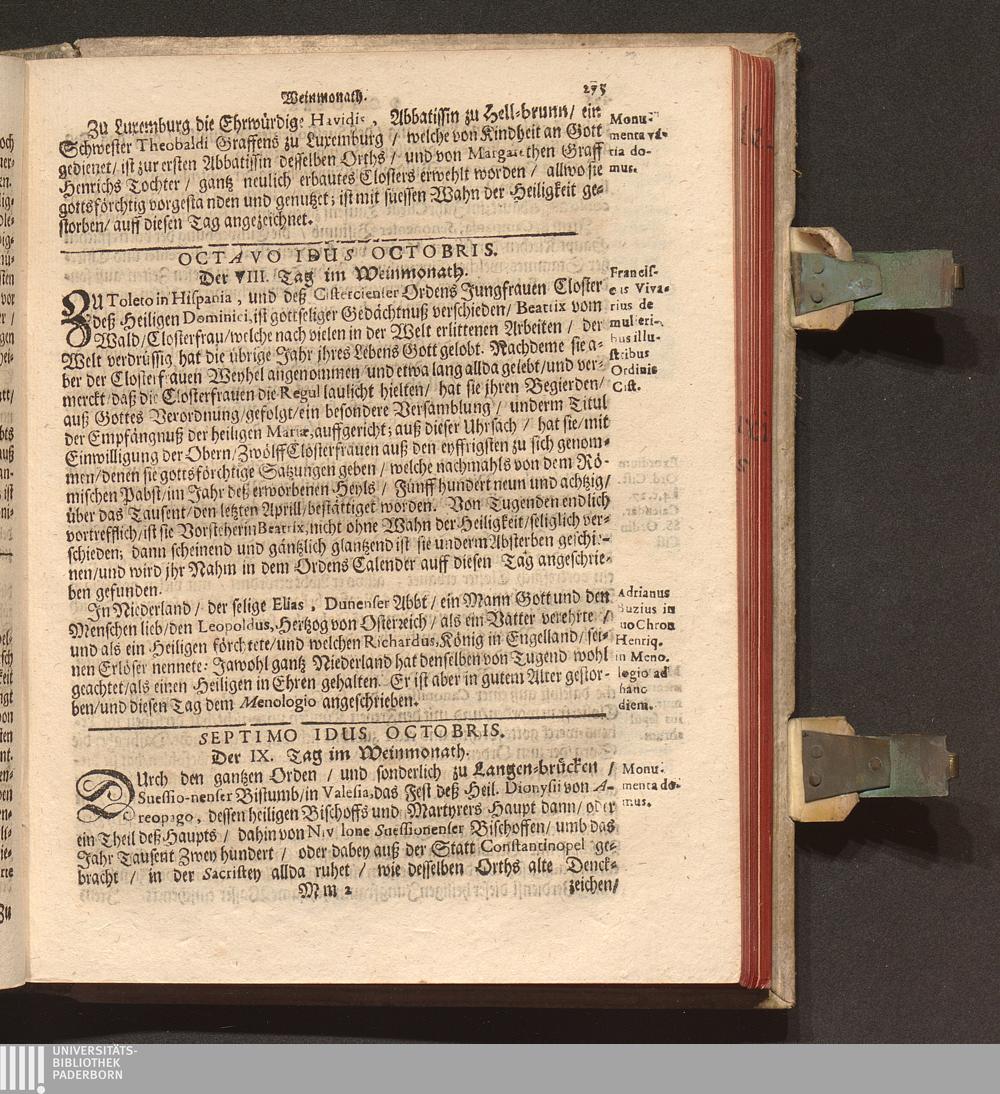 Weinmonath. 275
Zu Luxemburg die Ehrwürdige Havidis, Abbatissin zu Hell-brunn/ ein
Schwester Theobaldi Graffens zu Luxemburg / welche von Kindheit an Gott
gedienet/ ist zur ersten Abbatissin desselben Orths / und von Margarethen Graff
Henrichs Tochter / gantz neulich erbautes Closters erwehlt worden / allwo sie
gottsförchtig vorgestanden und genutzet; ist mit suessen Wahn der Heiligkeit ge-
storben/ auff diesen Tag angezeichnet.
Monu-
menta vá-
ria do-
mus.
OCTAVO IDUS OCTOBRIS.
Der VIII. Tag im Weinmonath.
ZU Toleto in Hispania, und deß Cistercienser Ordens Jungfrauen Closter
deß Heiligen Dominici, ist gottseliger Gedächtnuß verschieden/ Beatrix vom
Wald/ Closterfrau/ welche nach vielen in der Welt erlittenen Arbeiten / der
Welt verdrüssig hat die übrige Jahr jhres Lebens Gott gelobt. Nachdeme sie a-
ber der Closterfrauen Weyhel angenommen/ und etwa lang allda gelebt/ und ver-
merckt/ daß die Closterfrauen die Regul laulicht hielten/ hat sie jhren Begierden/
auß Gottes Verordnung/ gefolgt/ ein besondere Versamblung / underm Titul
der Empfängnuß der heiligen Mariæ, auffgericht; auß dieser Uhrsach / hat sie/ mit
Einwilligung der Obern/ Zwölff Closterfrauen auß den eyffrigsten zu sich genom-
men/ denen sie gottsförchtige Satzungen geben / welche nachmahls von dem Rö-
mischen Pabst/ im Jahr deß erworbenen Heyls / Fünff hundert neun und achtzig/
über das Tausent/ den letzten Aprill/ bestättiget worden. Von Tugenden endlich
vortrefflich/ ist sie Vorsteherin Beatrix, nicht ohne Wahn der Heiligkeit/ seliglich ver-
schieden; dann scheinend und gäntzlich glantzend ist sie underm Absterben geschie-
nen/ und wird jhr Nahm in dem Ordens Calender auff diesen Tag angeschrie-
ben gefunden.
Francis-
cus Viva-
rius de
mulieri-
bus illu-
stribus
Ordinis
Cist.
In Niederland / der selige Elias, Dunenser Abbt / ein Mann Gott und den
Menschen lieb/ den Leopoldus, Hertzog von Osterreich / als ein Vatter verehrte /
und als ein Heiligen förchtete/ und welchen Richardus, König in Engelland/ sei-
nen Erlöser nennete: Jawohl gantz Niederland hat denselben von Tugend wohl
geachtet/ als einen Heiligen in Ehren gehalten. Er ist aber in gutem Alter gestor-
ben/ und diesen Tag dem Menologio angeschrieben.
Adrianus
Buzius in
suo Chron
Henriq.
in Meno.
logio ad
hanc
diem.
SEPTIMO IDUS OCTOBRIS.
Der IX. Tag im Weinmonath.
DUrch den gantzen Orden / und sonderlich zu Langen-brücken /
Suessio-nenser Bistumb/ in Valesia, das Fest deß Heil. Dionysii von A-
reopago, dessen heiligen Bischoffs und Martyrers Haupt dann/ oder
ein Theil deß Haupts / dahin von Nivlone Suessionenser Bischoffen/ umb das
Jahr Tausent Zwey hundert / oder dabey auß der Statt Constantinopel ge-
bracht / in der Sacristey allda ruhet / wie desselben Orths alte Denck-
Monu-
menta do-
mus.
M m 2 zeichen/
UNIVERSITÄTS-
BIBLIOTHEK
PADERBORN